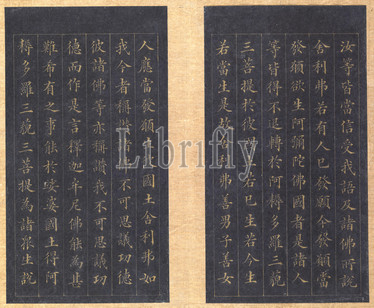 汝等皆當信受我語及諸佛所說
舍利弗若有人已發願今發願當
發願欲生阿彌陀佛國者是諸人
等皆得不退轉於阿耨多羅三藐
三菩提於彼國土若已生若今生
若當生是故舍利弗善男子善女
人應當發願生彼國土舍利弗如
我今者稱讚諸佛不可思議功德
彼諸佛等亦稱讚我不可思議功
德而作是言釋迦牟尼佛能為甚
難希有之事能於娑婆國土得阿
耨多羅三藐三菩提為諸眾生說
Librifly